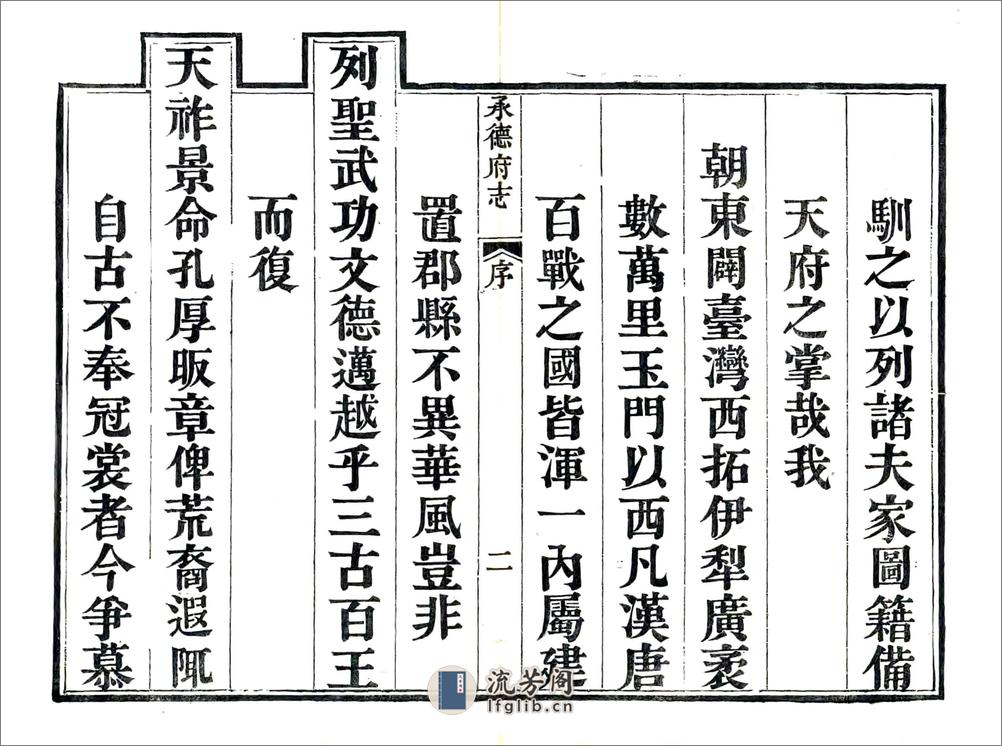 馴之以列諸夫家圖籍備
天府之掌哉我
朝東闢臺灣西拓伊犁廣袤
數萬里玉門以西凡漢唐
百戰之國皆渾一內屬建
承德府志
序
二
置郡縣不異華風豈非
列聖武功文德邁越乎三古百王
而復
天祚景命孔厚昄章俾荒裔遐陬
自古不奉冠裳者今爭慕
流芳阁
lfglib.cn